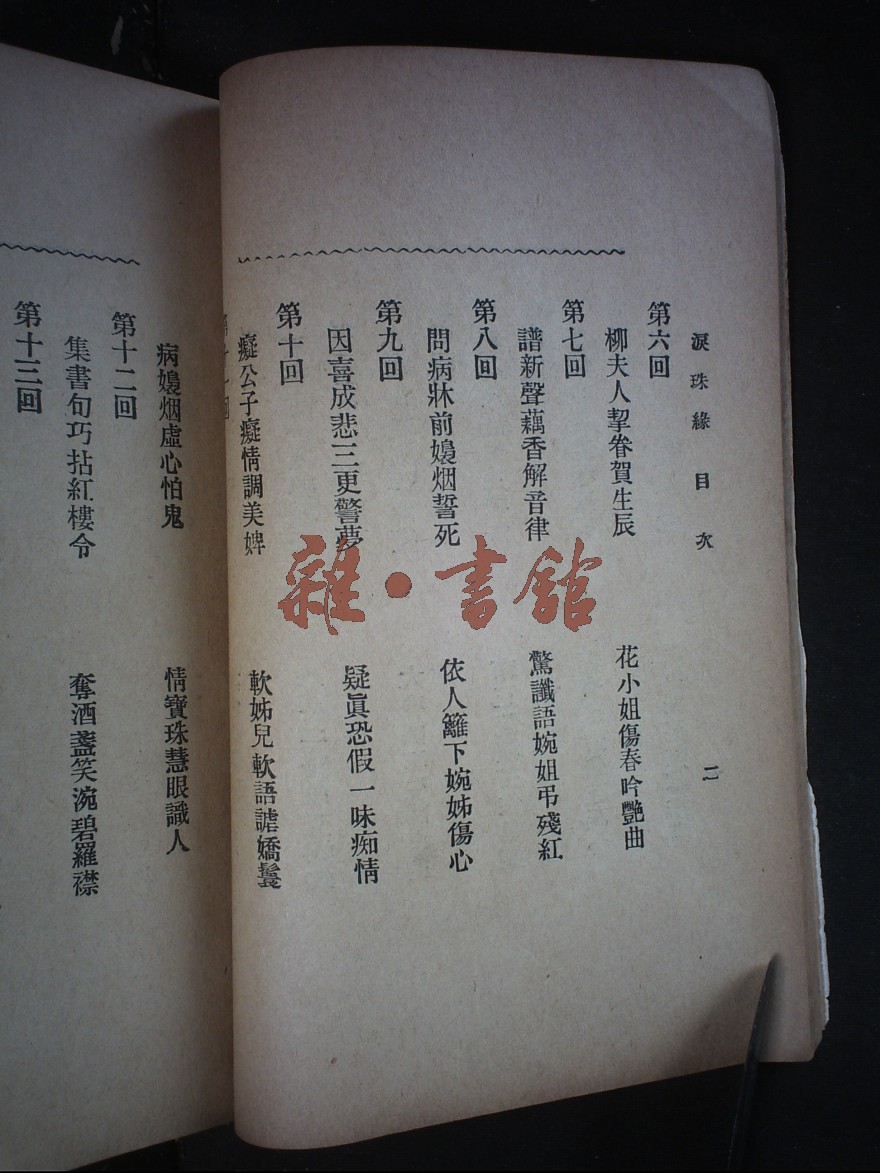 淚珠緣 目次 二
第六回
柳夫人挈眷賀生辰 花小姐傷春吟艷曲
第七回
譜新聲藕香解音律 驚讖語婉姐弔殘紅
第八回
問病牀前嫚烟誓死 依人籬下婉姊傷心
第九回
因喜成悲三更警夢 疑眞恐假一味痴情
第十回
癡公子癡情調美婢 軟姊兒軟語謔嬌鬟
病嫚烟虛心怕鬼 情寶珠慧眼識人
第十二回
集書句巧拈紅樓令 奪酒盞笑涴碧羅襟
第十三回
雜·書館